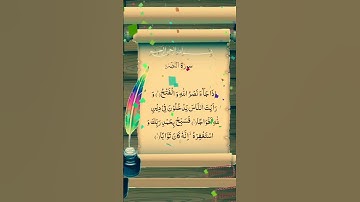 بسم الله الرحمن الرحيم
سورة النصر
إِذَا جَآءَ نَصْرُ اللهِ وَالْفَتْحُ ۙ﴿١﴾ وَ
رَاَيْتَ النَّاسَ يَدْخُلُوْنَ فِيْ دِيْنِ
اللهِ اَفْوَاجًا ۙ﴿٢﴾ فَسَبِّحْ بِحَمْدِ رَبِّكَ وَ
اسْتَغْفِرْهُ ؔ اِنَّهٗ كَانَ تَوَّابًا ﴿٣﴾